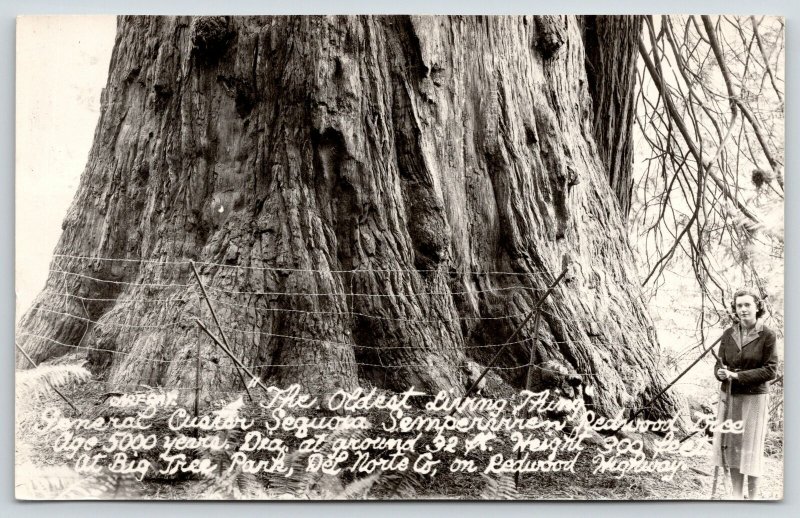 "The Oldest Living Thing"
General Custer Sequoia Semperviren Redwood Tree
Age 5000 years. Dra. at around 92 ft. Height 300 feet
At Big Tree Park, Del Norte Co, on Redwood Highway.